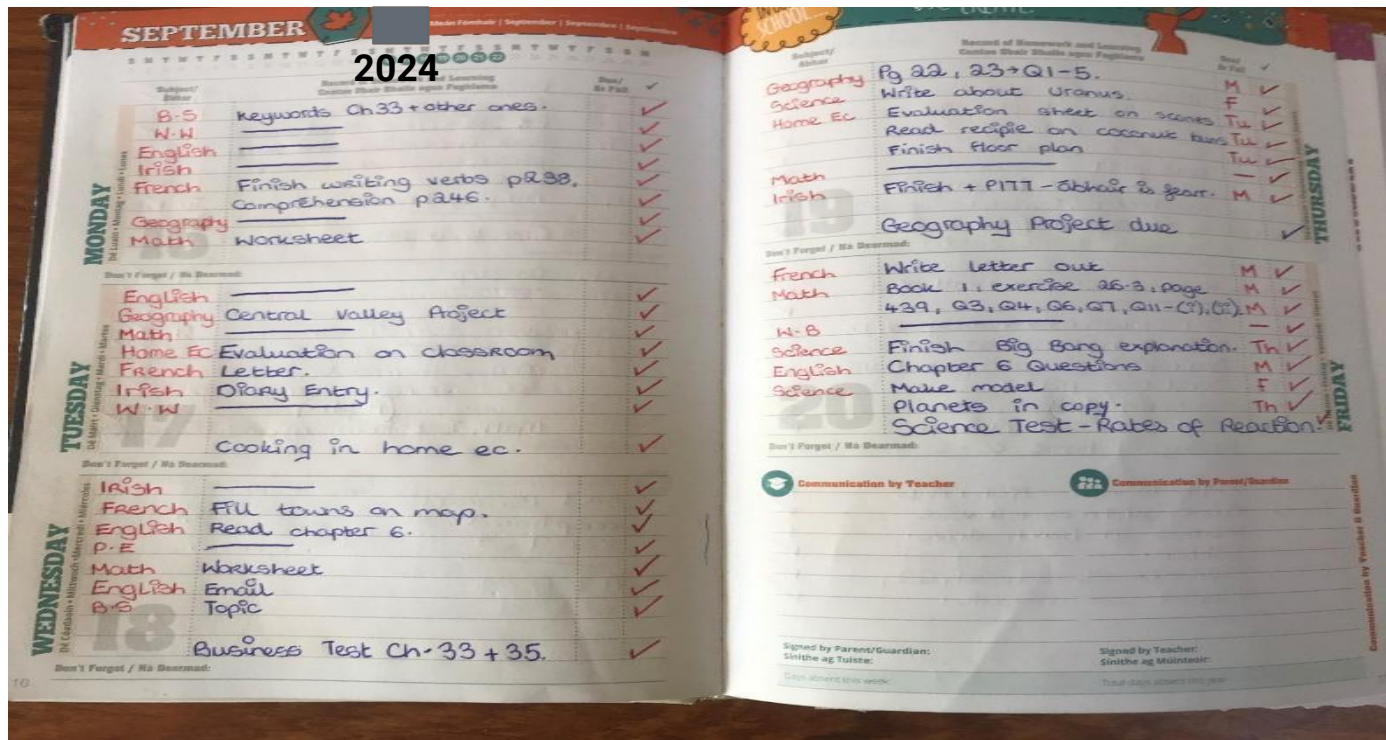 SEPTEMBER
Meán Fómhair | September | Septembre | September
2024
S M T W T F S S M T W T F S S M T W T F S S M
19 20 21 22
Subject/ Ábhar
Record of Homework and Learning
Due/
✓
B.S Keywords Ch 33 + other ones. ✓
W.W ✓
English ✓
Irish ✓
French Finish writing verbs p238. ✓
Comprehension p246. ✓
Geography ✓
Math Worksheet ✓
MONDAY
Dé Luain • Montag • Lundi • Lunes
Don't Forget / Ná Dearmad:
English ✓
Geography Central Valley Project ✓
Math ✓
Home Ec Evaluation on classroom ✓
French Letter. ✓
Irish Diary Entry. ✓
W.W ✓
Cooking in home ec. ✓
TUESDAY
17
Don't Forget / Ná Dearmad:
Irish ✓
French Fill towns on map. ✓
English Read chapter 6. ✓
P.E ✓
Math Worksheet ✓
English Email ✓
B.S Topic ✓
Business Test Ch-33 + 35. ✓
WEDNESDAY
18
Don't Forget / Ná Dearmad:
16
SCHOOL
Subject/ Ábhar
Record of Homework and Learning
✓
Geography Pg 22, 23 → Q1-5. M ✓
Science Write about Uranus. F ✓
Home Ec Evaluation sheet on scones Tu ✓
Read recipie on coconut buns Tu ✓
Finish floor plan Tu ✓
Math — ✓
Irish Finish + P177 - ábhair is fearr. M ✓
Geography Project due ✓
THURSDAY
19
Don't Forget / Ná Dearmad:
French Write letter out M ✓
Math Book 1, exercise 26.3, page M ✓
439, Q3, Q4, Q6, Q7, Q11-(i),(ii). M ✓
W.B — ✓
Science Finish Big Bang explanation. Th ✓
English Chapter 6 Questions M ✓
Science Make model F ✓
Planets in copy. Th ✓
Science Test - Rates of Reaction ✓
FRIDAY
20
Don't Forget / Ná Dearmad:
Communication by Teacher
Communication by Parent/Guardian
Communication by Teacher & Guardian
Signed by Parent/Guardian:
Sínithe ag Tuiste:
Signed by Teacher:
Sínithe ag Múinteoir:
Days absent this week:
Total days absent this year: